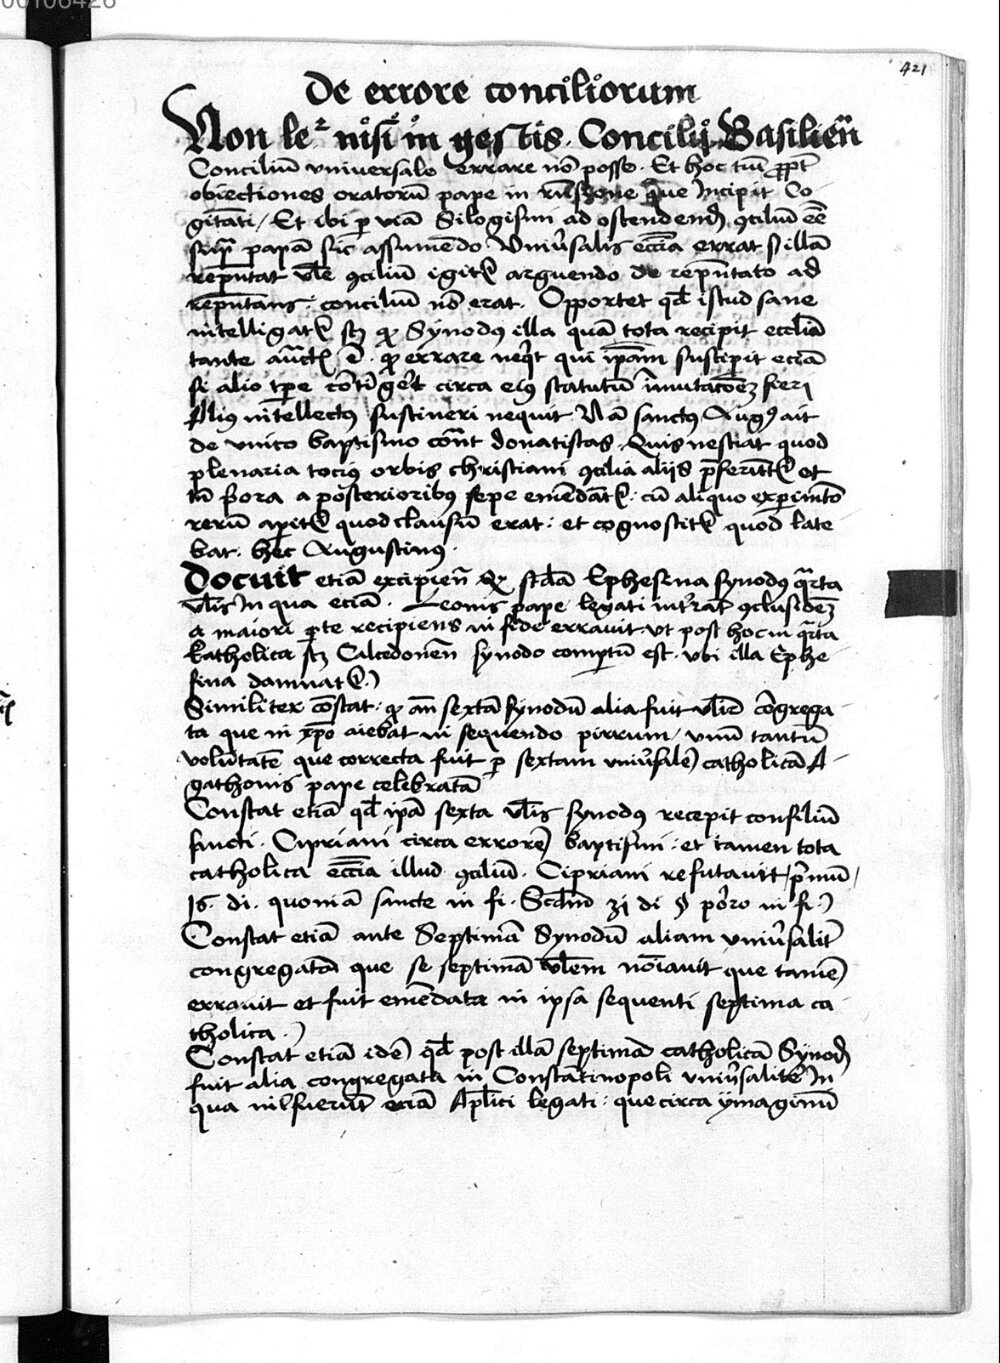 00106426
421
De errore conciliorum
Non le^r nisi in gestis. Concilij Basilien̄
Conciliū vniversale errare nō posse. Et hoc tm̄ ꝓpt̄
obiectiones oratorū pape in que Incipit Co-
gitāti / Et ibi ꝑ viā Silogismi ad ostendend ꝯciliū eē̄
suꝑ papā sic assumēdo Vniūsalis eccīa errat si illā
repn̄tat vl̄e ꝯciliū igit arguendo de repn̄tato ad
repn̄tans: conciliū nō erat. Opportet qd̄ istud sane
intelligat sꝫ ꝙ Synodꝰ illa quā tota recipit eccl̄ia
tante au̅ct ē. ꝙ errare neq̄t qui ip̄am suscipit eciā
si alio tꝑe cōtīgēt circa eiꝰ statutū īmutacōeꝫ fieri
Aliꝰ intellectꝰ sustineri nequit Nā sanctꝰ Aug ait
de vnico baptismo con̄t donatistas. Quis nesciat quod
plenaria tociꝰ orbis christiani ꝯcilia alijs p̄ferūt et
tn̄ p̄ora a posterioribꝰ sepe emēdāt: cū aliquo experimēto
rerū aꝑit quod clausū erat: et cognoscit quod late-
bat. hec Augustinꝰ.
Docuit etiā excipien̄ ꝙ scd̄a Ephesena synodꝰ q̄rta
vl̄is In qua eciā. Leonis pape legati int̄rāt
a maiori ꝑte recipiens in fide erravit. vt post hoc in q̄rta
katholica sꝫ Calcedonen̄ synodo comꝑtū est. vbi illa Ephe-
sina damnat.)
Similiter cōstat: ꝙ an̄ sextā synodū alia fuit vl̄r cōgrega-
ta que in xp̄o aiebat in sequendo pirrum / vnū tantū
voluntatē que correcta fuit ꝑ sextam vniūsalē catholicā A-
gathonis pape celebratā
Constat etiā qd̄ ip̄a sexta vl̄is synodꝰ recepit consiliū
sancti. Cipriani circa errorē baptismi: et tamen tota
catholica eccīa illud ꝯciliū. Cipriani refutauit / p̄mū /
16. di. quoniā sancte in fi. Scd̄m 31 di § pōro in fi.)
Constat etiā ante Septimā Synodū aliam vniūsalit̄
congregatā que se septimā vl̄em noīauit que tamē
erravit et fuit emēdata in ipsa sequenti septima ca-
tholica.)
Constat etiā idē qd̄ post illā septimā catholicā Synod
fuit alia congregata in Constātinopoli vniūsalit̄ In
qua eciā Apl̄ici legati: que circa ymaginū